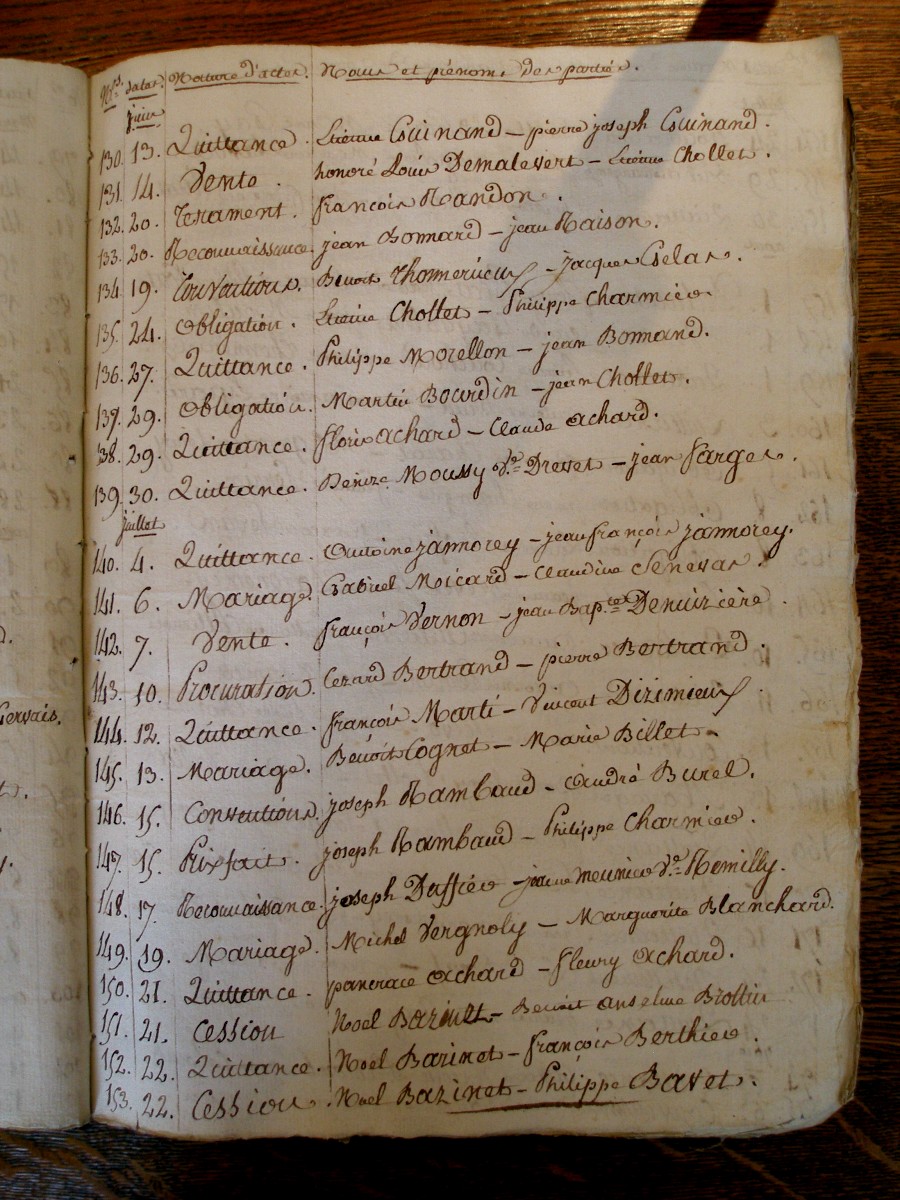 Nos. dates. Nature d'actes. Noms et prénoms des parties.
juin
130. 13. Quittance. Etienne Couinand – pierre joseph Couinand.
131. 14. Vente. honoré Louis Demalevert – Etienne Chollet.
132. 20. Testament. françois Randon.
133. 20. Reconnaissance. jean Bonnard – jean Raison.
134. 19. Conventions. Benoit Thomerieux – jacques Eselas.
135. 24. Obligation. Etienne Chollet – Philippe Charmier
136. 27. Quittance. Philippe Morellon – jean Bonnand.
137. 29. Obligation. Martin Bourdin – jean Chollet.
138. 29. Quittance. floris achard – Claude achard.
139. 30. Quittance. Denize Moussy ve. Drevet – jean farges.
juillet
140. 4. Quittance. Antoine jamorey – jean françois jamorey.
141. 6. Mariage. Gabriel Moicard – Claudine Senevas.
142. 7. Vente. françois Vernon – jean Bapte. Denuizière.
143. 10. Procuration. Cezard Bertrand – pierre Bertrand.
144. 12. Quittance. françois Marti – Vincent Dizimieux.
145. 13. Mariage. Benoit Cognet – Marie Billet
146. 15. Conventions. joseph Rambaud – André Burel.
147. 15. Prixfait. joseph Rambaud – Philippe Charmier.
148. 17. Reconnaissance. joseph Daffier – jeanne meunier ve. Remilly.
149. 19. Mariage. Michel Vergnoly – Marguerite Blanchard.
150. 21. Quittance. pancrace achard – fleury achard.
151. 21. Cession Noel Bazinet – Benoit anselme Brottin
152. 22. Quittance. Noel Bazinet – françois Berthier.
153. 22. Cession. Noel Bazinet – Philippe Bavet.
Gervais.